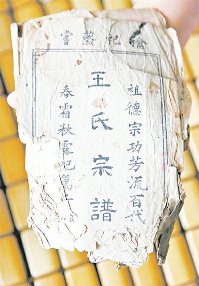 禴祀蒸嘗
祖德宗功芳流百代
王氏宗譜
春霜秋露祀